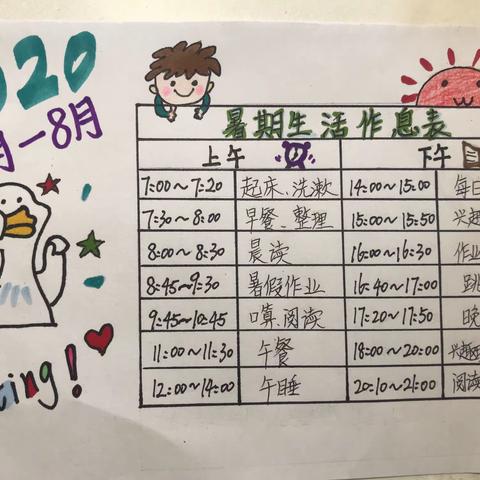 2020
月-8月
暑期生活作息表
上午 下午
7:00～7:20 起床、洗漱 14:00～15:00 每日
7:30～8:00 早餐、整理 15:00～15:50 兴趣
8:00～8:30 晨读 16:00～16:30 作业
8:45～9:30 暑假作业 16:40～17:00 跳
9:45～10:45 口算、阅读 17:20～17:50 晚
11:00～11:30 午餐 18:00～20:00 兴趣
12:00～14:00 午睡 20:10～21:00 阅读
ing!